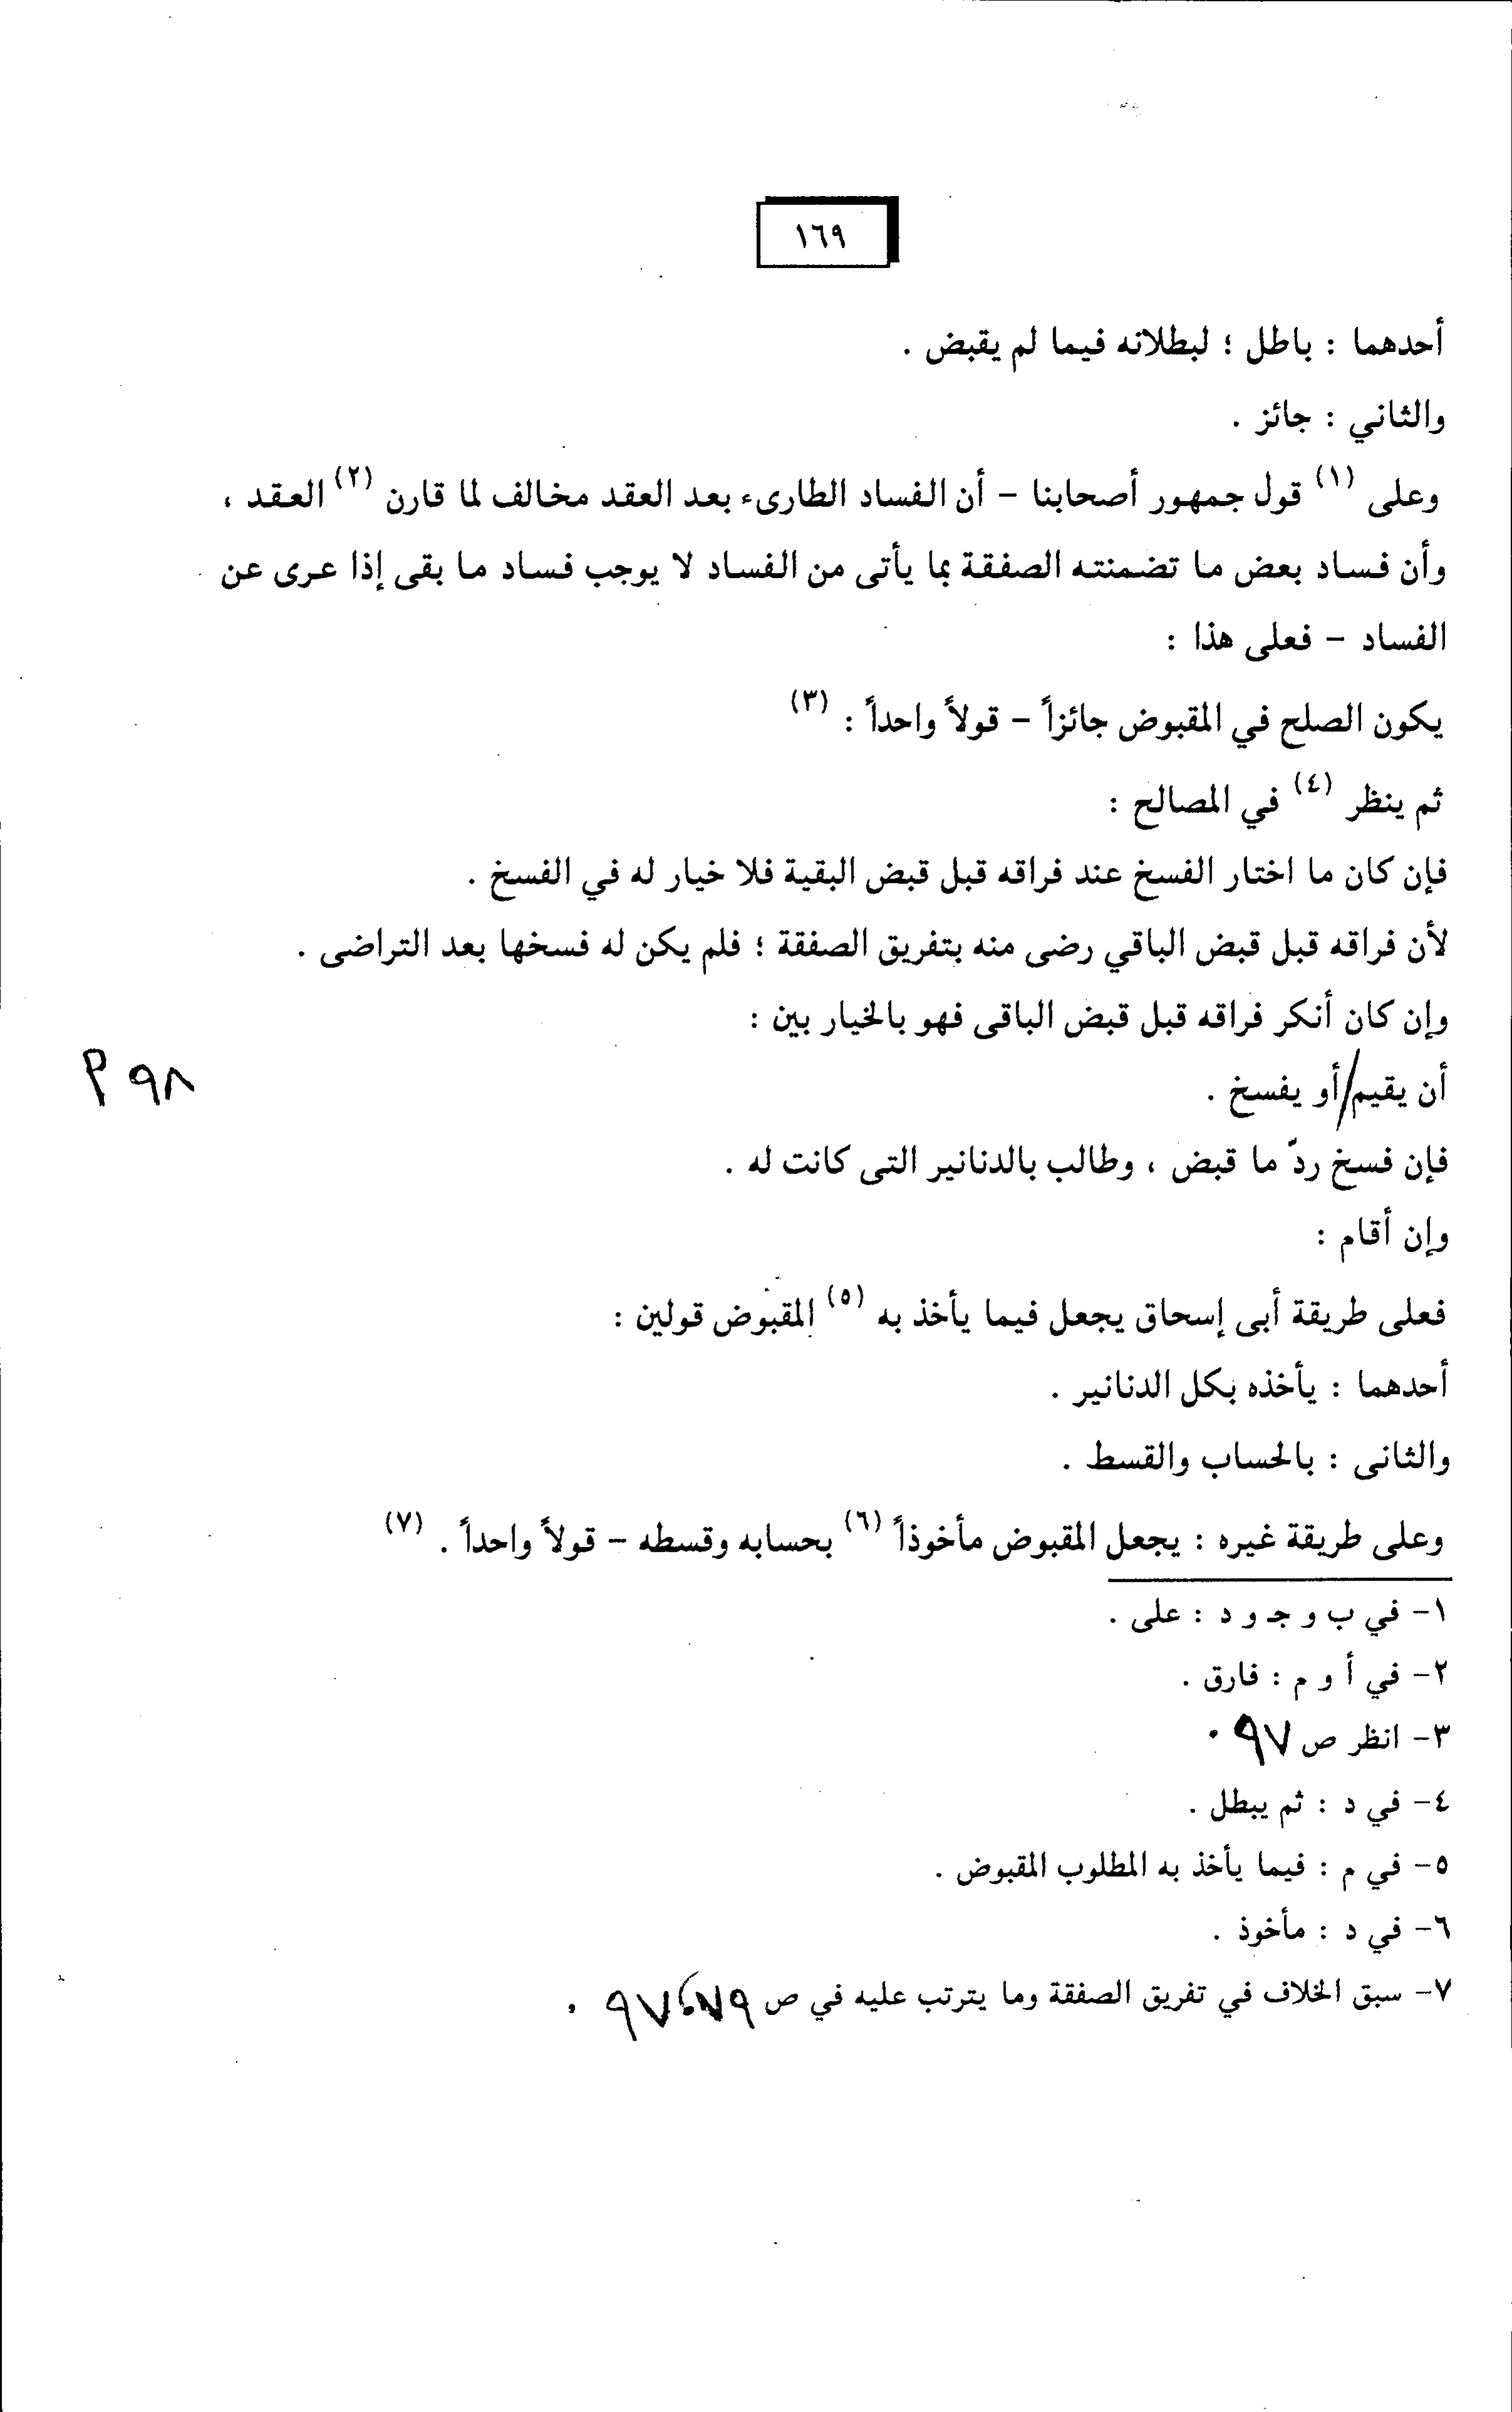 ١٦٩
أحدهما : باطل ؛ لبطلانه فيما لم يقبض .
والثاني : جائز .
وعلى (١) قول جمهور أصحابنا – أن الفساد الطارىء بعد العقد مخالف لما قارن (٢) العقد ،
وأن فساد بعض ما تضمنته الصفقة بما يأتى من الفساد لا يوجب فساد ما بقى إذا عرى عن
الفساد – فعلى هذا :
يكون الصلح في المقبوض جائزاً – قولاً واحداً : (٣)
ثم ينظر (٤) في المصالح :
فإن كان ما اختار الفسخ عند فراقه قبل قبض البقية فلا خيار له في الفسخ .
لأن فراقه قبل قبض الباقي رضى منه بتفريق الصفقة ؛ فلم يكن له فسخها بعد التراضى .
وإن كان أنكر فراقه قبل قبض الباقى فهو بالخيار بين :
أن يقيم/أو يفسخ . ٩٨ م
فإن فسخ ردّ ما قبض ، وطالب بالدنانير التى كانت له .
وإن أقام :
فعلى طريقة أبى إسحاق يجعل فيما يأخذ به (٥) المقبوض قولين :
أحدهما : يأخذه بكل الدنانير .
والثانى : بالحساب والقسط .
وعلى طريقة غيره : يجعل المقبوض مأخوذاً (٦) بحسابه وقسطه – قولاً واحداً . (٧)
١– في ب و جـ و د : على .
٢– في أ و م : فارق .
٣– انظر ص ٩٧ .
٤– في د : ثم يبطل .
٥– في م : فيما يأخذ به المطلوب المقبوض .
٦– في د : مأخوذ .
٧– سبق الخلاف في تفريق الصفقة وما يترتب عليه في ص